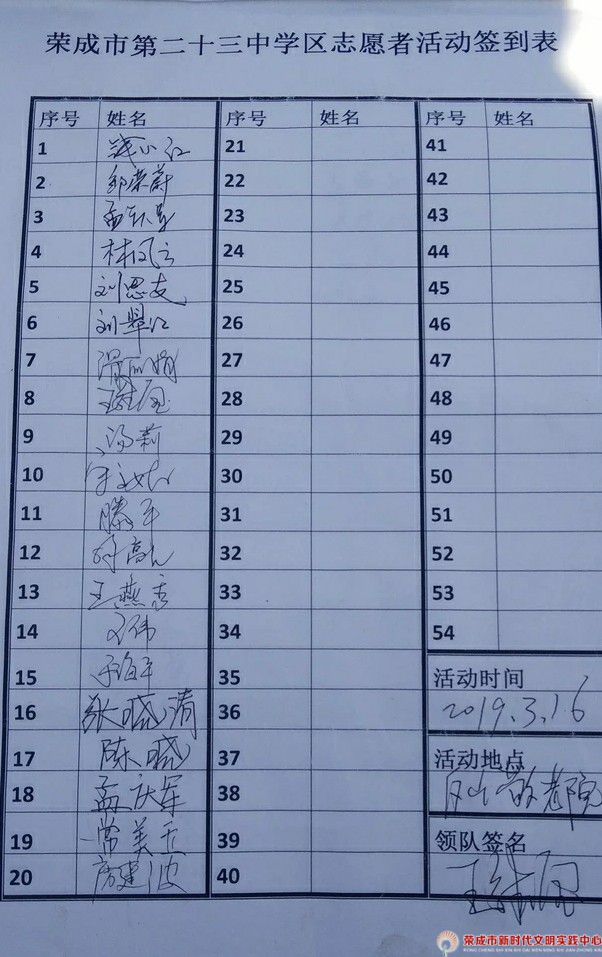 荣成市第二十三中学区志愿者活动签到表
序号 姓名 序号 姓名 序号 姓名
1 21 41
2 邹荣蔚 22 42
3 23 43
4 林凤云 24 44
5 刘思友 25 45
6 刘翠江 26 46
7 27 47
8 28 48
9 汤莉 29 49
10 30 50
11 滕平 31 51
12 32 52
13 王燕秀 33 53
14 34 54
15 于海平 35 活动时间
16 张晓清 36 2019.3.16
17 陈晓 37 活动地点
18 孟庆军 38 敬老院
19 常美玉 39 领队签名
20 房建波 40
荣成市新时代文明实践中心
RONG CHENG SHI XIN SHI DAI WEN MING SHI JIAN ZHONG XIN